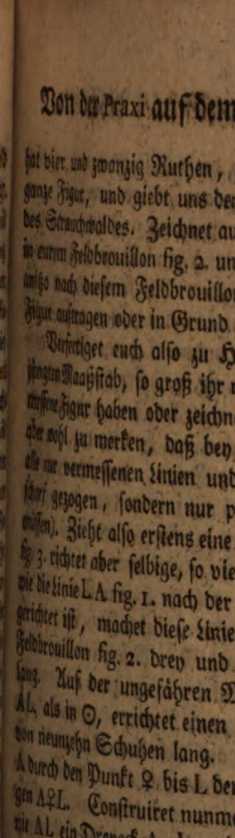 Von der Praxi auf dem
hat vier und zwanzig Ruthen,
ganze Figur, und giebt uns de
des Strauchwaldes. Zeichnet au
in eurem Feldbrouillon fig. 2. un
nach diesem Feldbrouillo
Figur auftragen oder in Grund
Verfertiget euch also zu H
Maaßstab, so groß ihr
Figur haben oder zeichn
aber wohl zu merken, daß bey
alle nur vermessenen Linien und
gezogen, sondern nur p
Zieht also erstens eine
fig. 3. richtet aber selbige, so vie
wie die Linie L A fig. 1. nach der
gerichtet ist, machet diese Linie
Feldbrouillon fig. 2. drey und
lang. Auf der ungefähren M
AL, als in ☉, errichtet einen
von neunzehn Schuhen lang.
A durch den Punkt ♀ bis L de
gen A♀L. Construiret nunm
wie AL ein Dreyeck